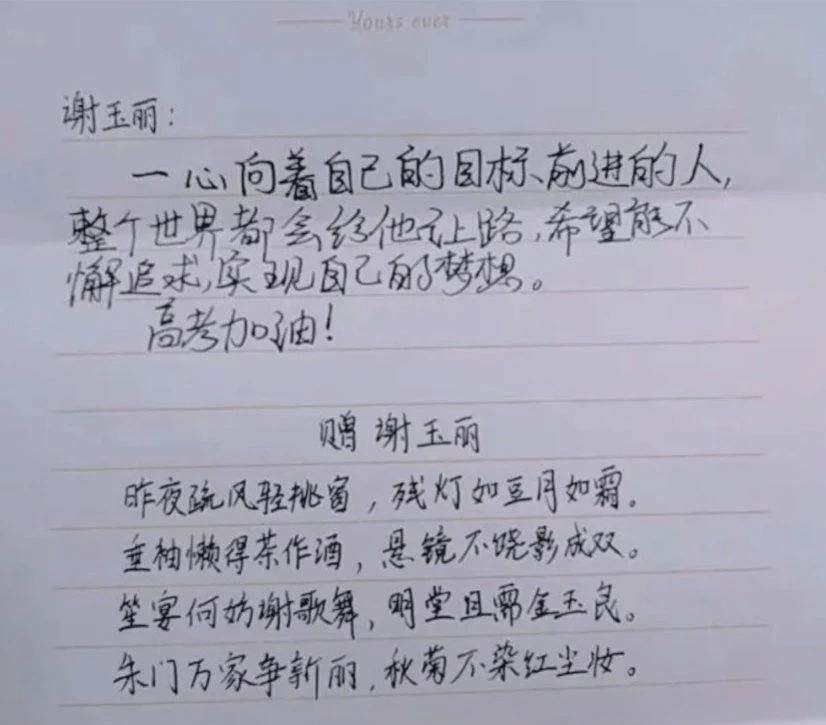 Yours ever
谢玉丽:
一心向着自己的目标前进的人,
整个世界都会给他让路,希望能不
懈追求,实现自己的梦想。
高考加油!
赠 谢玉丽
昨夜疏风轻挑窗,残灯如豆月如霜。
垂袖懒得茶作酒,悬镜不晓影成双。
笙宴何妨谢歌舞,明堂且需金玉良。
朱门万家争新丽,秋菊不染红尘妆。